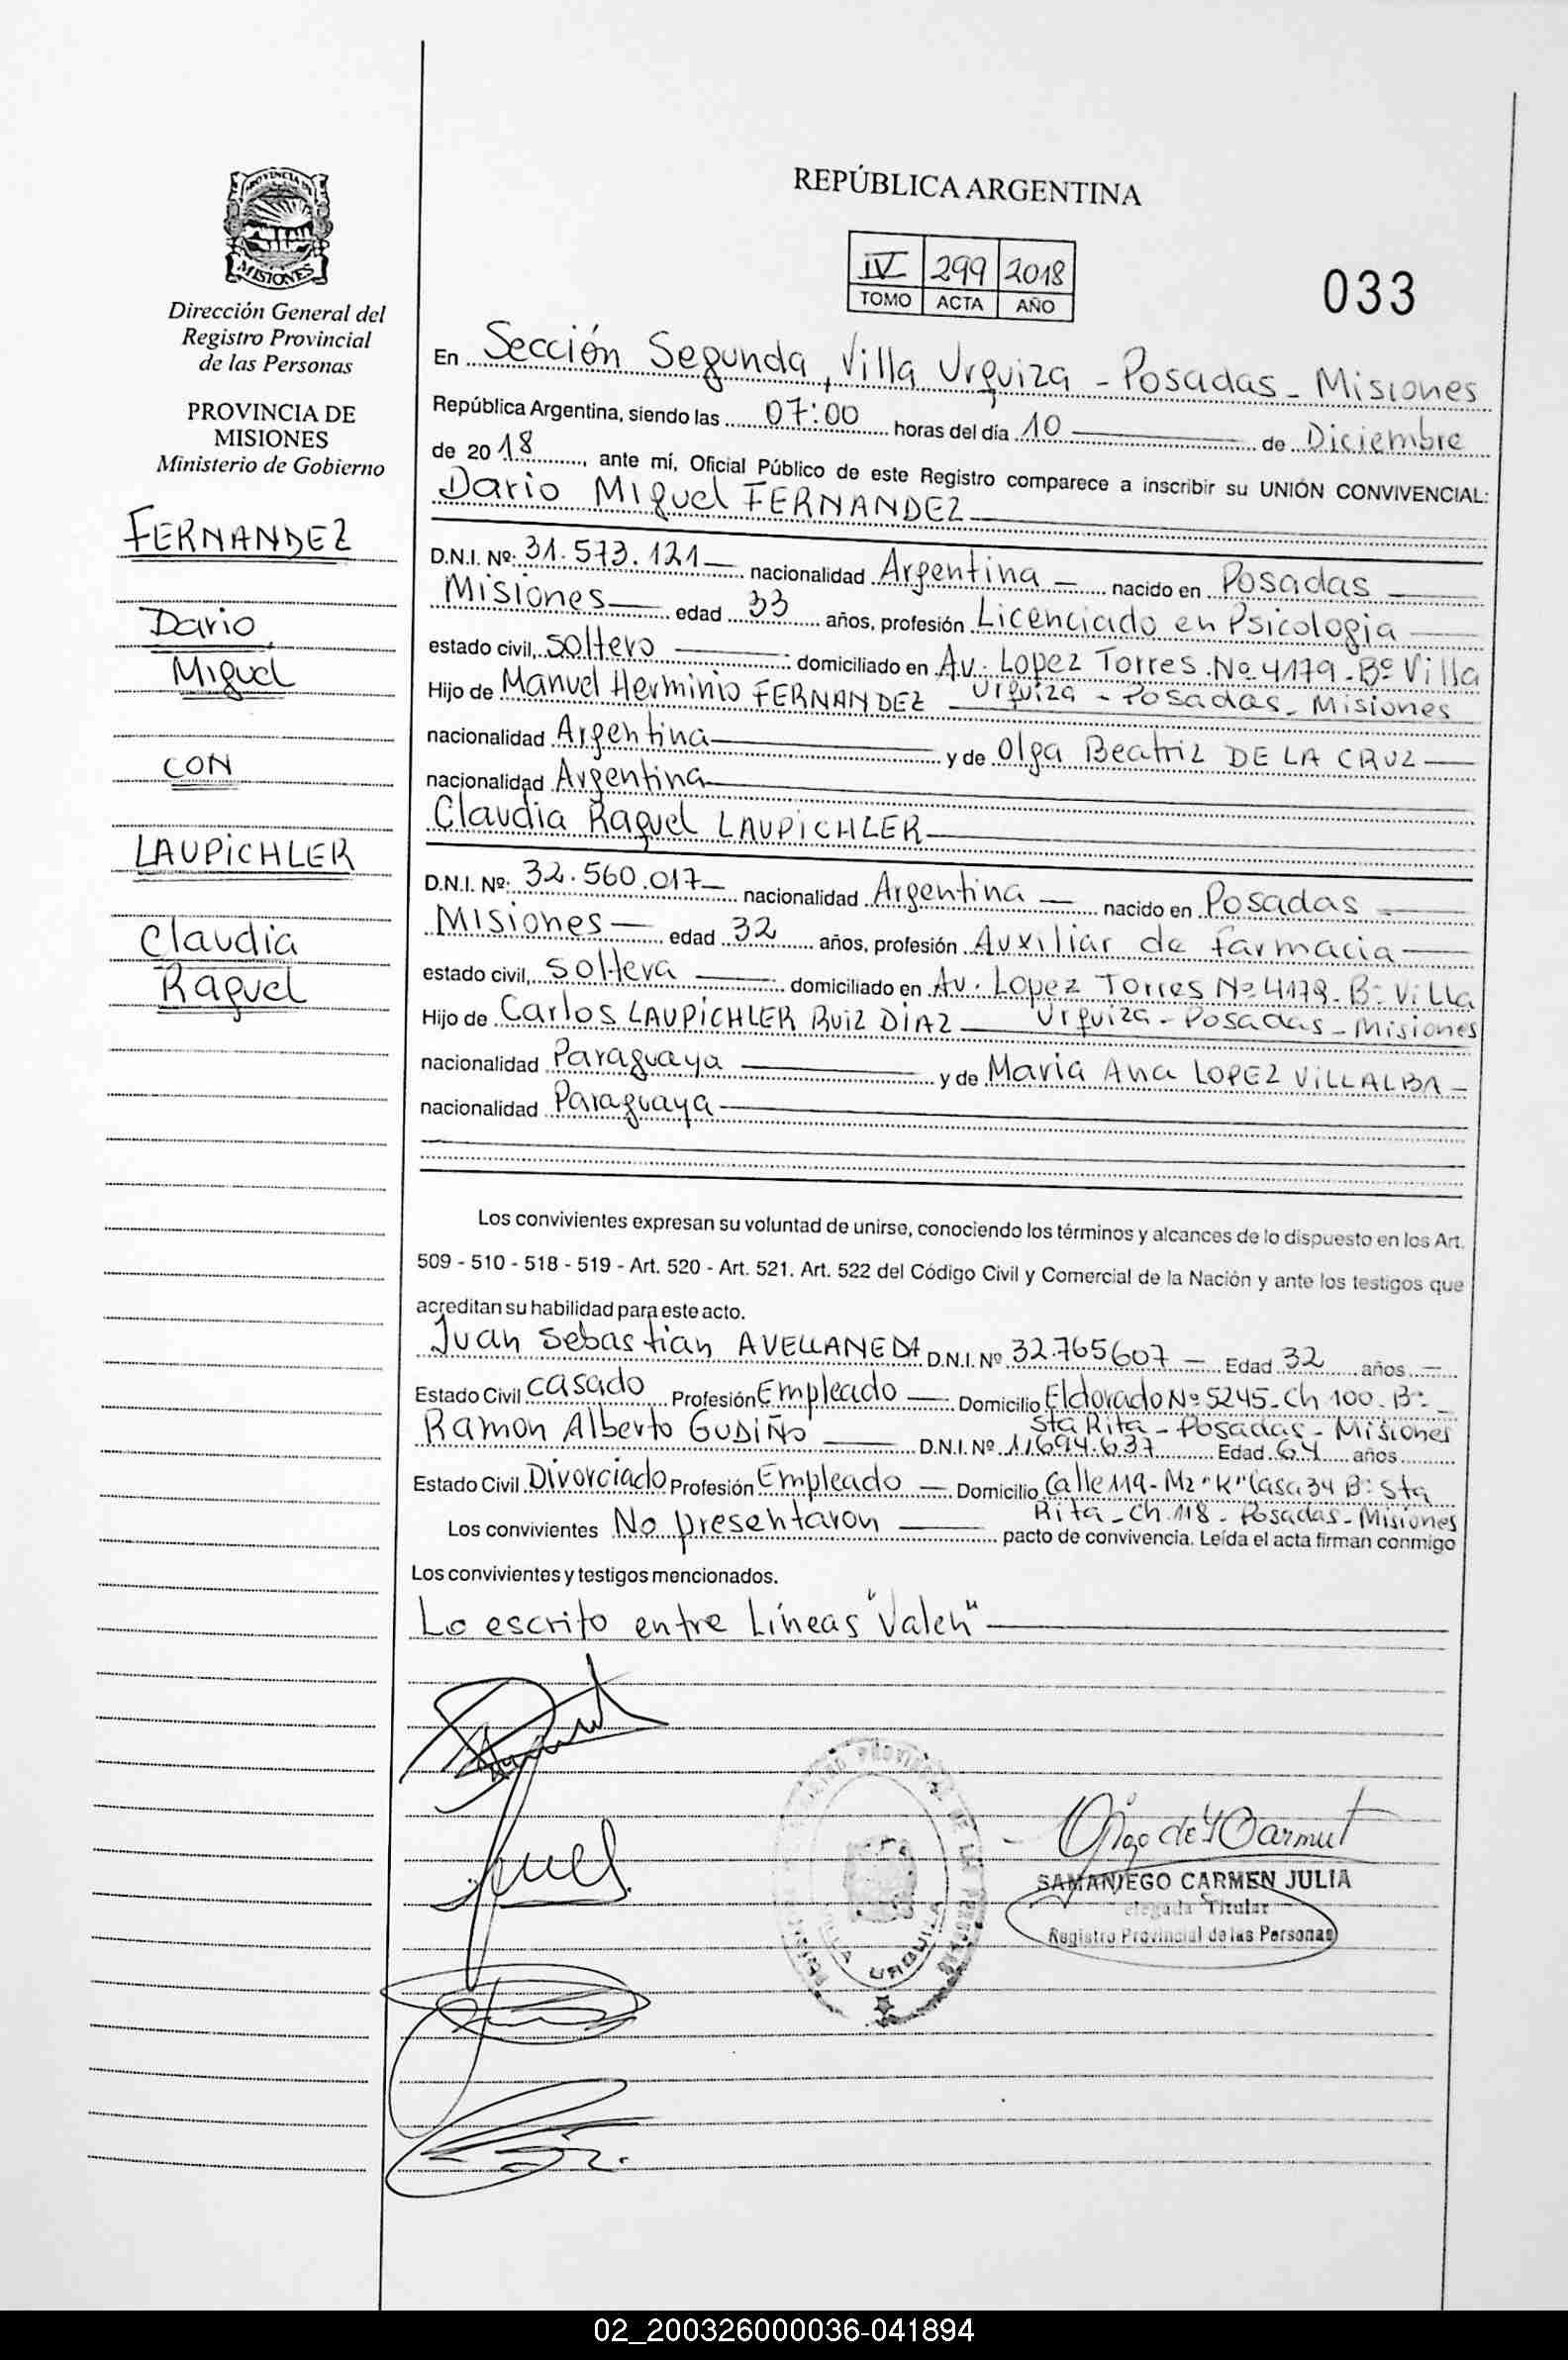 PROVINCIA DE
MISIONES
Dirección General del
Registro Provincial
de las Personas
PROVINCIA DE
MISIONES
Ministerio de Gobierno
FERNANDEZ
Dario
Miguel
CON
LAUPICHLER
Claudia
Raquel
REPÚBLICA ARGENTINA
IV 299 2018
TOMO ACTA AÑO
033
En Sección Segunda, Villa Urquiza - Posadas - Misiones
República Argentina, siendo las 07:00 horas del día 10 de Diciembre
de 2018, ante mí, Oficial Público de este Registro comparece a inscribir su UNIÓN CONVIVENCIAL:
Dario Miguel FERNANDEZ
D.N.I. Nº: 31.573.121 nacionalidad Argentina nacido en Posadas
Misiones edad 33 años, profesión Licenciado en Psicologia
estado civil, soltero domiciliado en Av. Lopez Torres Nº 4179 - Bº Villa
Urquiza - Posadas - Misiones
Hijo de Manuel Herminio FERNANDEZ
nacionalidad Argentina y de Olga Beatriz DE LA CRUZ
nacionalidad Argentina
Claudia Raquel LAUPICHLER
D.N.I. Nº: 32.560.017 nacionalidad Argentina nacido en Posadas
Misiones edad 32 años, profesión Auxiliar de farmacia
estado civil, soltera domiciliado en Av. Lopez Torres Nº 4179 - Bº Villa
Urquiza - Posadas - Misiones
Hijo de Carlos LAUPICHLER RUIZ DIAZ
nacionalidad Paraguaya y de Maria Ana LOPEZ VILLALBA
nacionalidad Paraguaya
Los convivientes expresan su voluntad de unirse, conociendo los términos y alcances de lo dispuesto en los Art.
509 - 510 - 518 - 519 - Art. 520 - Art. 521. Art. 522 del Código Civil y Comercial de la Nación y ante los testigos que
acreditan su habilidad para este acto.
Juan Sebastian AVELLANEDA D.N.I. Nº 32.765607 Edad 32 años
Estado Civil casado Profesión Empleado Domicilio Eldorado Nº 5245 - Ch 100 - Bº
Sta Rita - Posadas - Misiones
Ramon Alberto GUDIÑO D.N.I. Nº 11.694.637 Edad 64 años
Estado Civil Divorciado Profesión Empleado Domicilio Calle 119 - Mz "K" Casa 34 Bº Sta
Rita - Ch. 118 - Posadas - Misiones
Los convivientes No presentaron pacto de convivencia. Leída el acta firman conmigo
Los convivientes y testigos mencionados.
Lo escrito entre Líneas "Valen"
SAMANIEGO CARMEN JULIA
Titular
Registro Provincial de las Personas
02_200326000036-041894